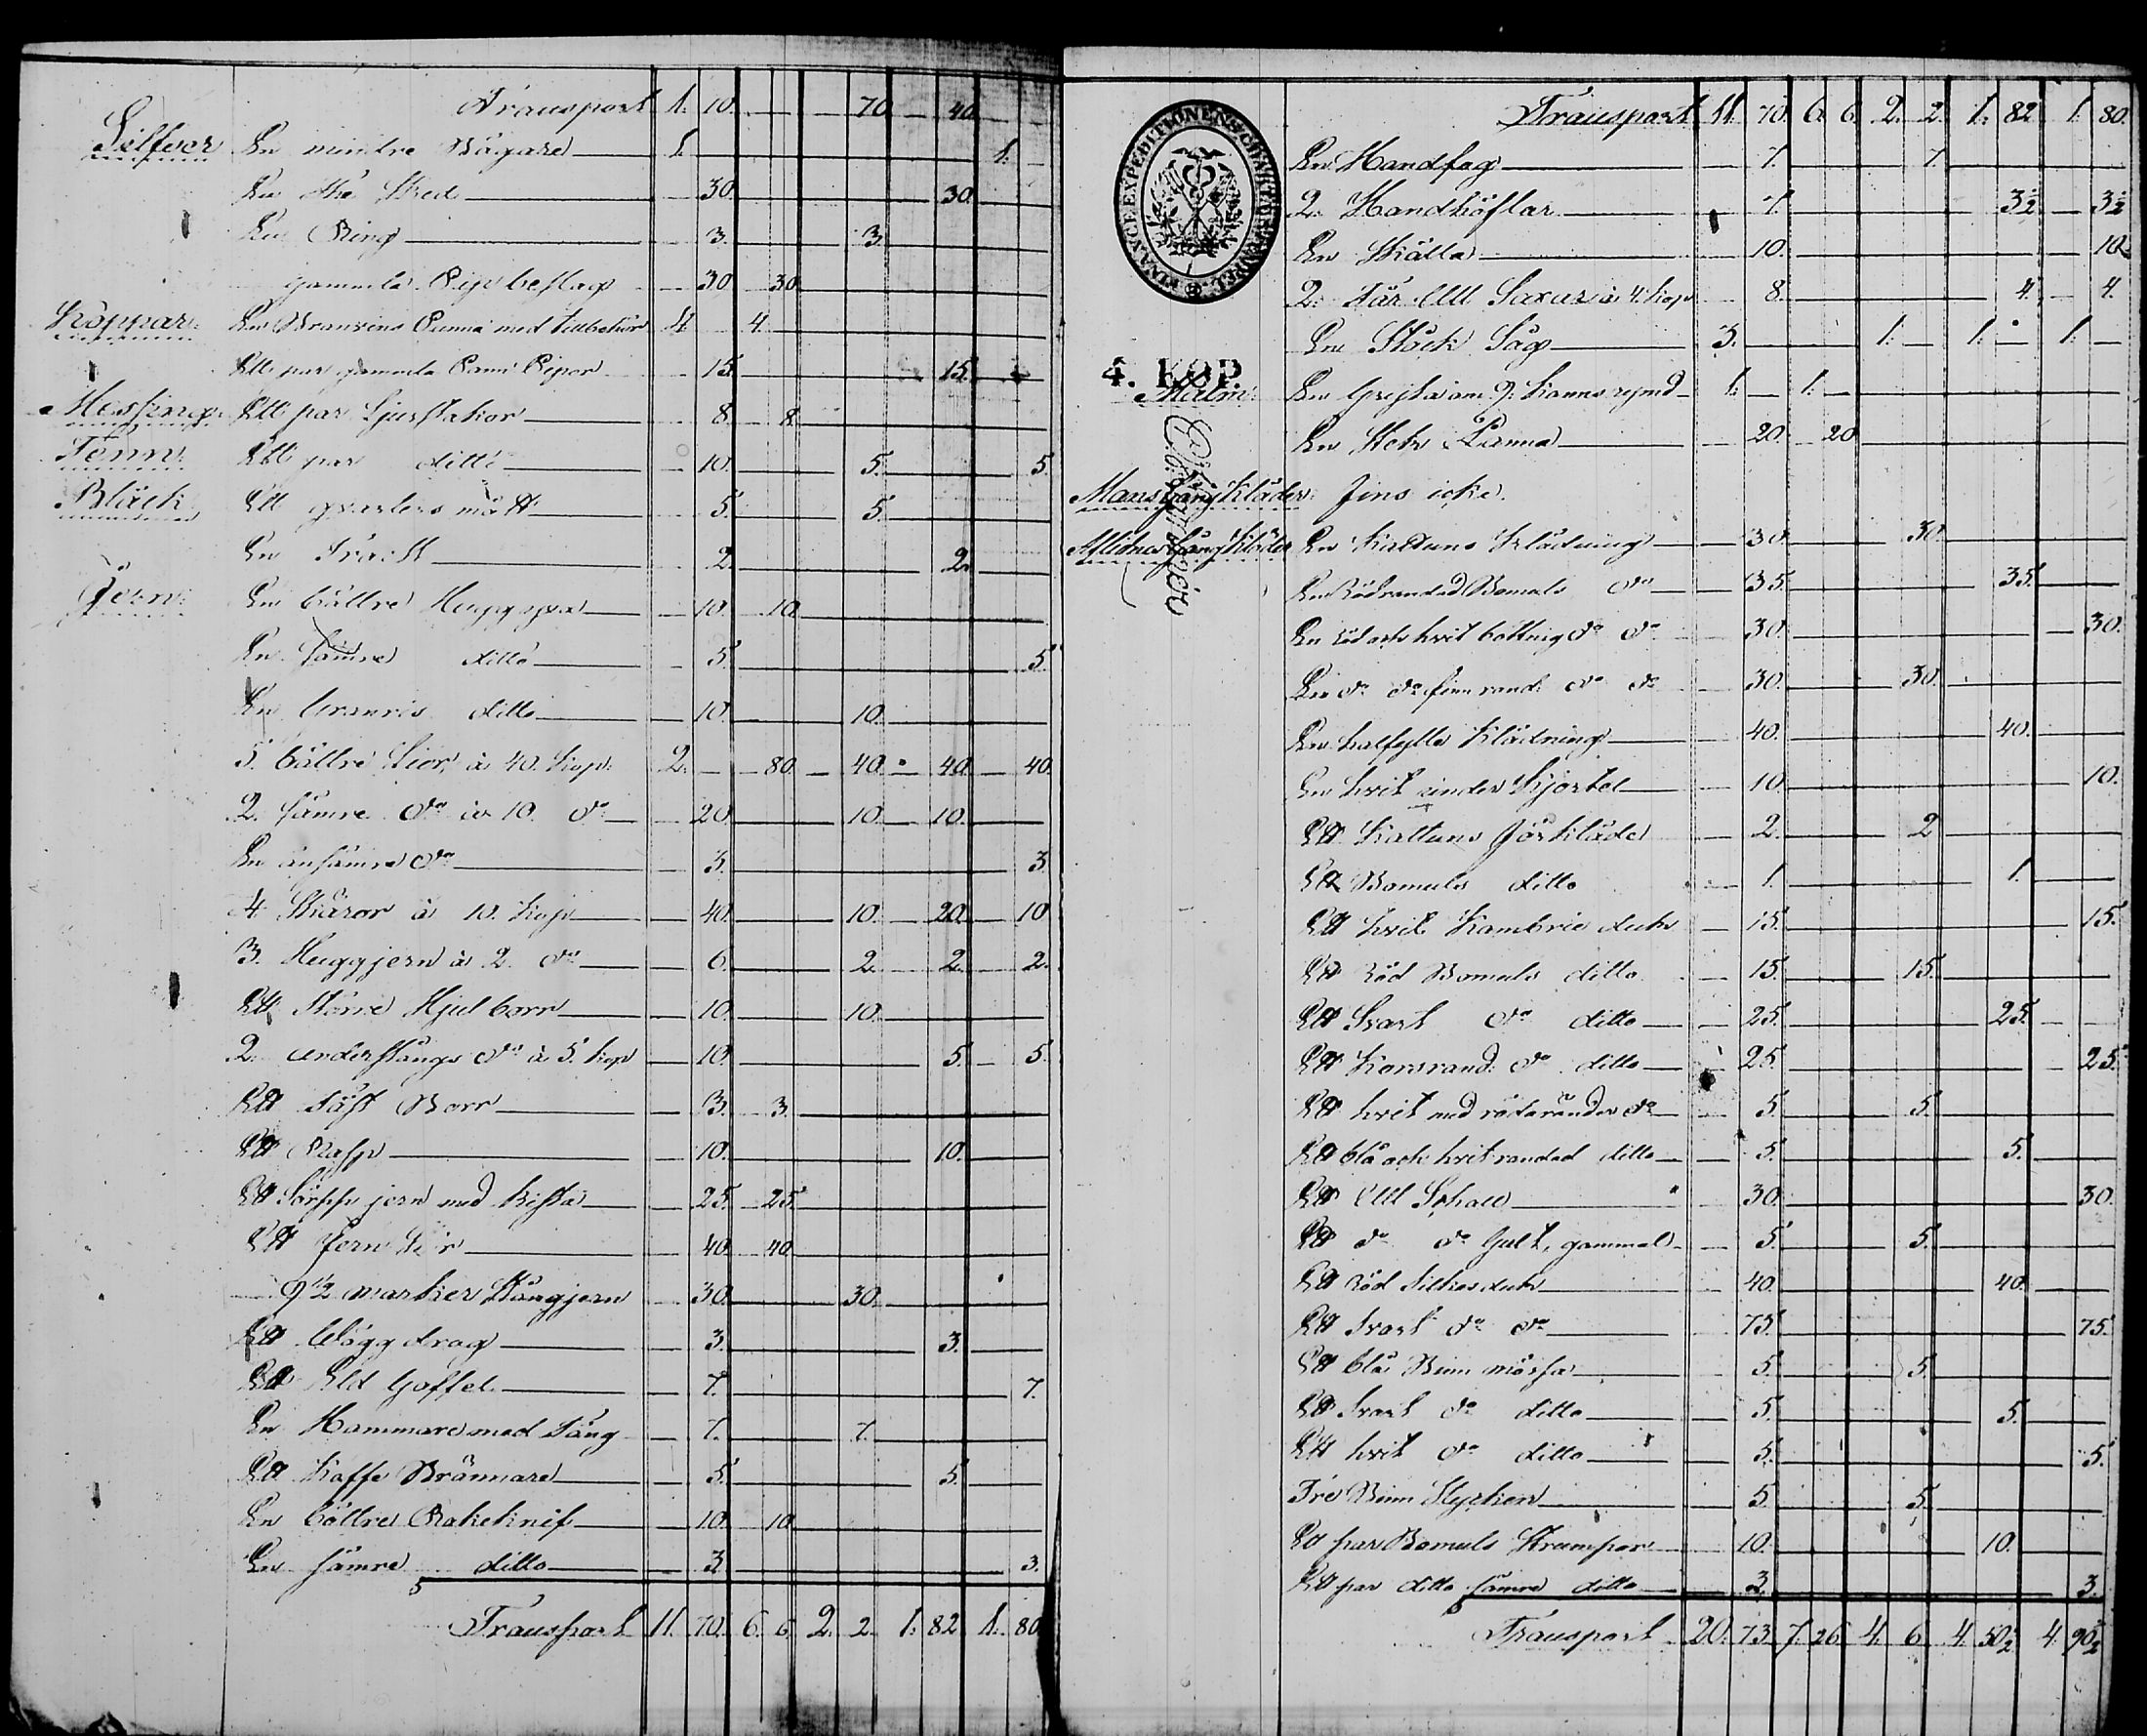 Transport 1. 10. 70 40
Silfver En mindre Bägare 1. 1.
En The Sked 30. 30
En Ring 3. 3.
gammla Pip beslag 30 30
Koppar: En Bränvins Panna med tillbehör 4. 4.
Ett par gammla Pann Pipor 15. 15.
Messing: Ett par Ljusstakor 8. 8.
Tenn: Ett par ditto 10. 5. 5.
Bläck Ett qvarters mått 5. 5.
En Tratt 2. 2.
Jern: En bättre Huggyxa 10. 10.
En sämre ditto 5. 5.
En ditto 10. 10.
5. bättre Liar, à 40. Kop: 2. 80. 40. 40. 40.
2. sämre do à 10. do 20. 10. 10.
En än sämre do 3. 3.
4. Skäror à 10. Kop 40. 10. 20. 10
3. Huggjern à 2. do 6. 2. 2. 2.
Ett större Hjul borr 10. 10.
2. do à 5. Kop 10. 5. 5.
Ett Borr 3. 3.
Ett Rasp 10. 10.
Ett jern med Kista 25. 25.
Ett Jern Rör 40. 40
9 1/2 marker Stångjern 30. 30.
Ett Wägg drag 3. 3.
Ett Eld Gaffel 7. 7.
En Hammare med Tång 7. 7.
Ett Kaffe Brännare 5. 5.
En bättre Rakeknif 10. 10
En sämre ditto 3. 3.
Transport 11. 70. 6. 6. 2. 2. 1. 82. 1. 80
FINANCE EXPEDITIONENS CHARTÆ STEMPEL
4. KOP.
Transport 11. 70. 6. 6. 2. 2. 1. 82 1. 80.
En Handsag 7. 7.
2. Handhöflar 7. 3 1/2 3 1/2
En Skälla 10. 10.
2. Par Ull Saxar à 4. Kop 8. 4. 4.
En Stock Såg 3. 1. 1. 1.
Malm: En Gryta om 9. Kanns rymd 1. 1.
En Stek Panna 20. 20
Mans Gång Kläder: Fins icke.
Aflidnas Gång Kläder En Kattuns Klädning 30. 30
En Rödrandad Bomuls do 35. 35.
En röd och hvit bottnig do do 30. 30.
En do do finrand: do do 30. 30.
En halfylle Klädning 40. 40.
En hvit under Kjortel 10. 10.
Ett Kattuns Förkläde 2. 2
Ett Bomuls ditto 1. 1.
Ett hvit Kambric duk 15. 15.
Ett Röd Bomuls ditto 15. 15.
Ett Svart do ditto 25. 25.
Ett Korsrand: do ditto 25. 25.
Ett hvit med röda ränder do 5. 5.
Ett blå och hvit randad ditto 5. 5.
Ett Ull Schall 30. 30.
Ett do do Gult, gammal 5. 5.
Ett Röd Silkes duk 40. 40.
Ett Svart do do 75. 75.
Ett blå Binn mössa 5. 5.
Ett Svart do ditto 5. 5.
Ett hvit do ditto 5. 5.
Tre Binn Stycken 5. 5.
Ett par Bomuls Strumpor 10. 10.
Ett par ditto sämre ditto 3. 3.
Transport 20. 73. 7. 26 4. 6. 4. 50 1/2 4. 90 1/2